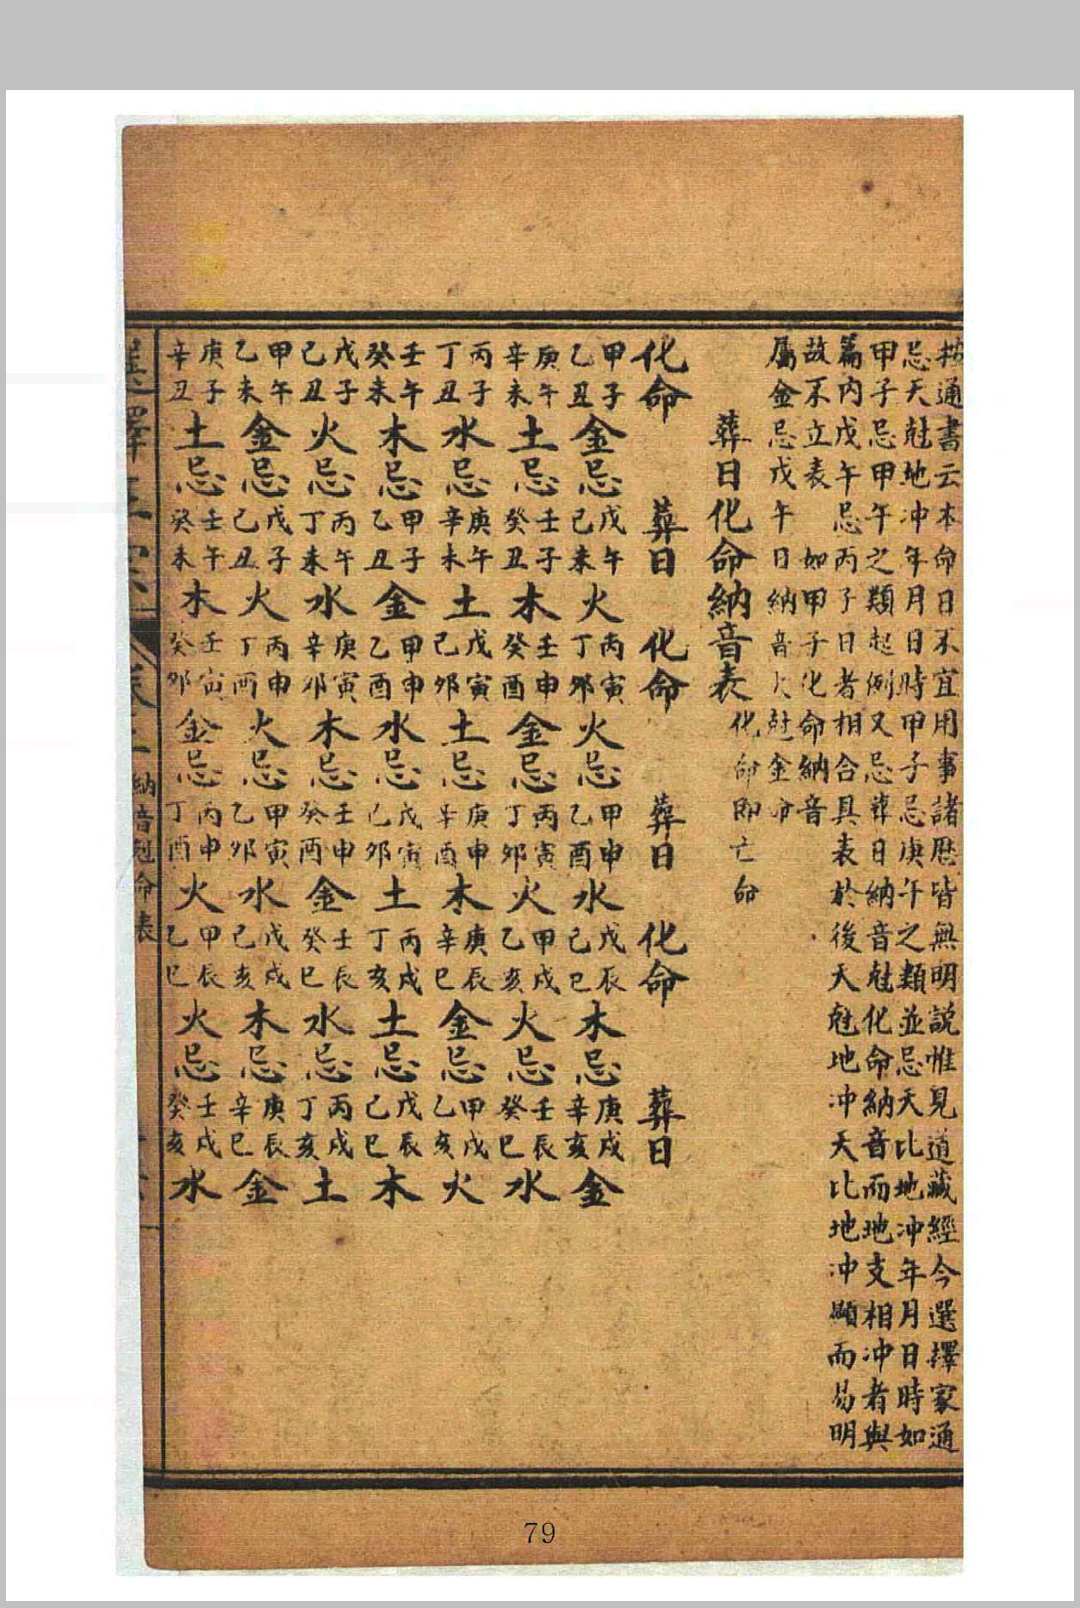 按通書云本命日不宜用事諸歷皆無明說惟見道藏經今選擇家通
忌天尅地冲年月日時甲子忌庚午之類並忌天比地冲年月日時如
甲子忌甲午之類起例又忌葬日納音尅化命納音而地支相冲者與
篇內戊午忌丙子日者相合具表於後天尅地冲天比地冲顯而易明
故不立表 如甲子化命納音
屬金忌戊午日納音火尅金命
葬日化命納音表 化命即亡命
化命 葬日 化命 葬日 化命 葬日
甲子乙丑金忌戊午己未火 丙寅丁卯火忌甲申乙酉水 戊辰己巳木忌庚戌辛亥金
庚午辛未土忌壬子癸丑木 壬申癸酉金忌丙寅丁卯火 甲戌乙亥火忌壬辰癸巳水
丙子丁丑水忌庚午辛未土 戊寅己卯土忌庚申辛酉木 庚辰辛巳金忌甲戌乙亥火
壬午癸未木忌甲子乙丑金 甲申乙酉水忌戊寅己卯土 丙戌丁亥土忌戊辰己巳木
戊子己丑火忌丙午丁未水 庚寅辛卯木忌壬申癸酉金 壬辰癸巳水忌丙戌丁亥土
甲午乙未金忌戊子己丑火 丙申丁酉火忌甲寅乙卯水 戊戌己亥木忌庚辰辛巳金
庚子辛丑土忌壬午癸未木 壬寅癸卯金忌丙申丁酉火 甲辰乙巳火忌壬戌癸亥水
納音尅命表
79